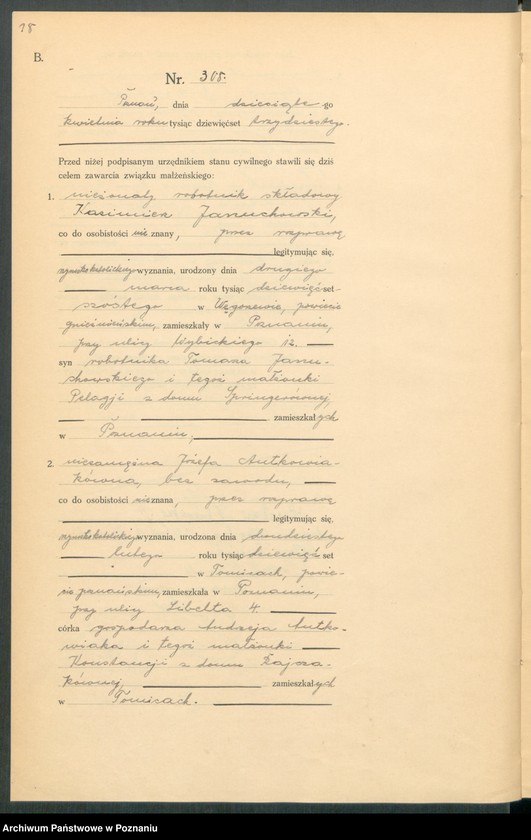 18
B.
Nr. 308.
Poznań, dnia dziesiąte-go
kwietnia roku tysiąc dziewięćset trzydziestego.
Przed niżej podpisanym urzędnikiem stanu cywilnego stawili się dziś
celem zawarcia związku małżeńskiego:
1. nieżonaty robotnik składowy
Kazimierz Januchowski,
co do osobistości nie znany, przez rozprawę
legitymując się,
rzymskokatolickiego wyznania, urodzony dnia drugiego
marca roku tysiąc dziewięćset-
szóstego w powiecie
gnieźnieńskim, zamieszkały w Poznaniu,
przy ulicy Wybickiego 12.
syn robotnika Tomasza Janu-
chowskiego i tegoż małżonki
Pelagji z domu Springerównej,
zamieszkałych
w Poznaniu,
2. niezamężna Józefa Antkowia-
kówna, bez zawodu,
co do osobistości nie znana, przez rozprawę
legitymując się,
rzymskokatolickiego wyznania, urodzona dnia dwudziestego
lutego roku tysiąc dziewięćset
w Tomicach, powie-
cie poznańskim, zamieszkała w Poznaniu,
przy ulicy Libelta 4.
córka gospodarza Andrzeja Antko-
wiaka i tegoż małżonki
Konstancji z domu
zamieszkałych
w Tomicach.
Archiwum Państwowe w Poznaniu